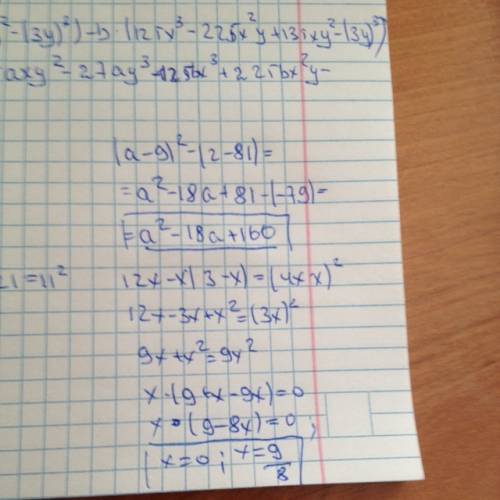 ²-(3y)²)-b·(125x³-225x²y+135xy²-(3y)³)
axy²-27ay³-125bx³+225bx²y-
(a-9)²-(2-81)=
=a²-18a+81-(-79)=
=a²-18a+160
21=11²
12x-x(3-x)=(4x x)²
12x-3x+x²=(3x)²
9x+x²=9x²
x·(9+x-9x)=0
x·(9-8x)=0;
x=0; x=9/8